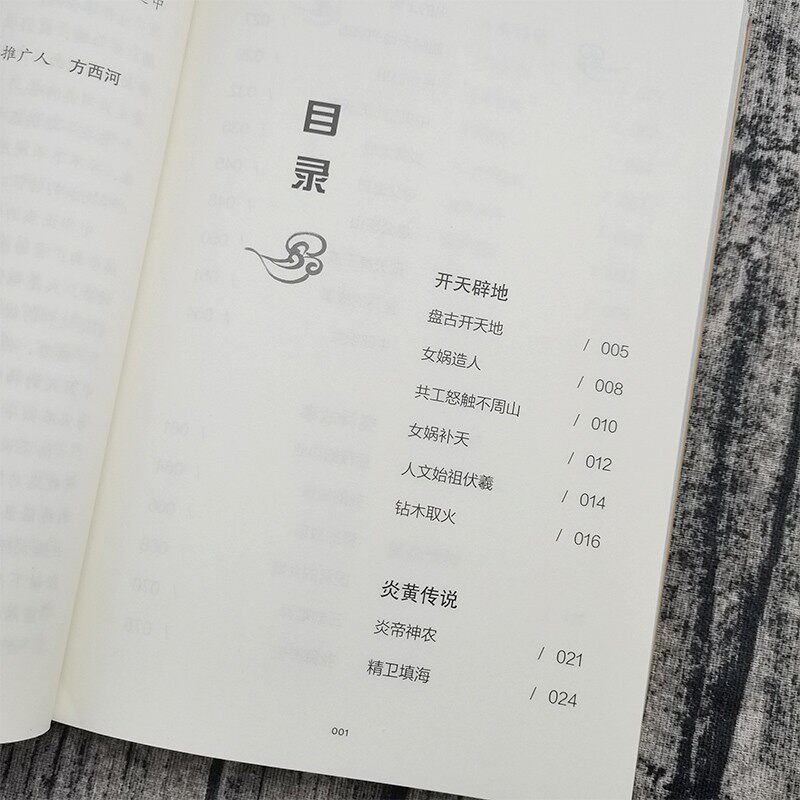 中
推广人 方西河
目录
开天辟地
盘古开天地 / 005
女娲造人 / 008
共工怒触不周山 / 010
女娲补天 / 012
人文始祖伏羲 / 014
钻木取火 / 016
炎黄传说
炎帝神农 / 021
精卫填海 / 024
001